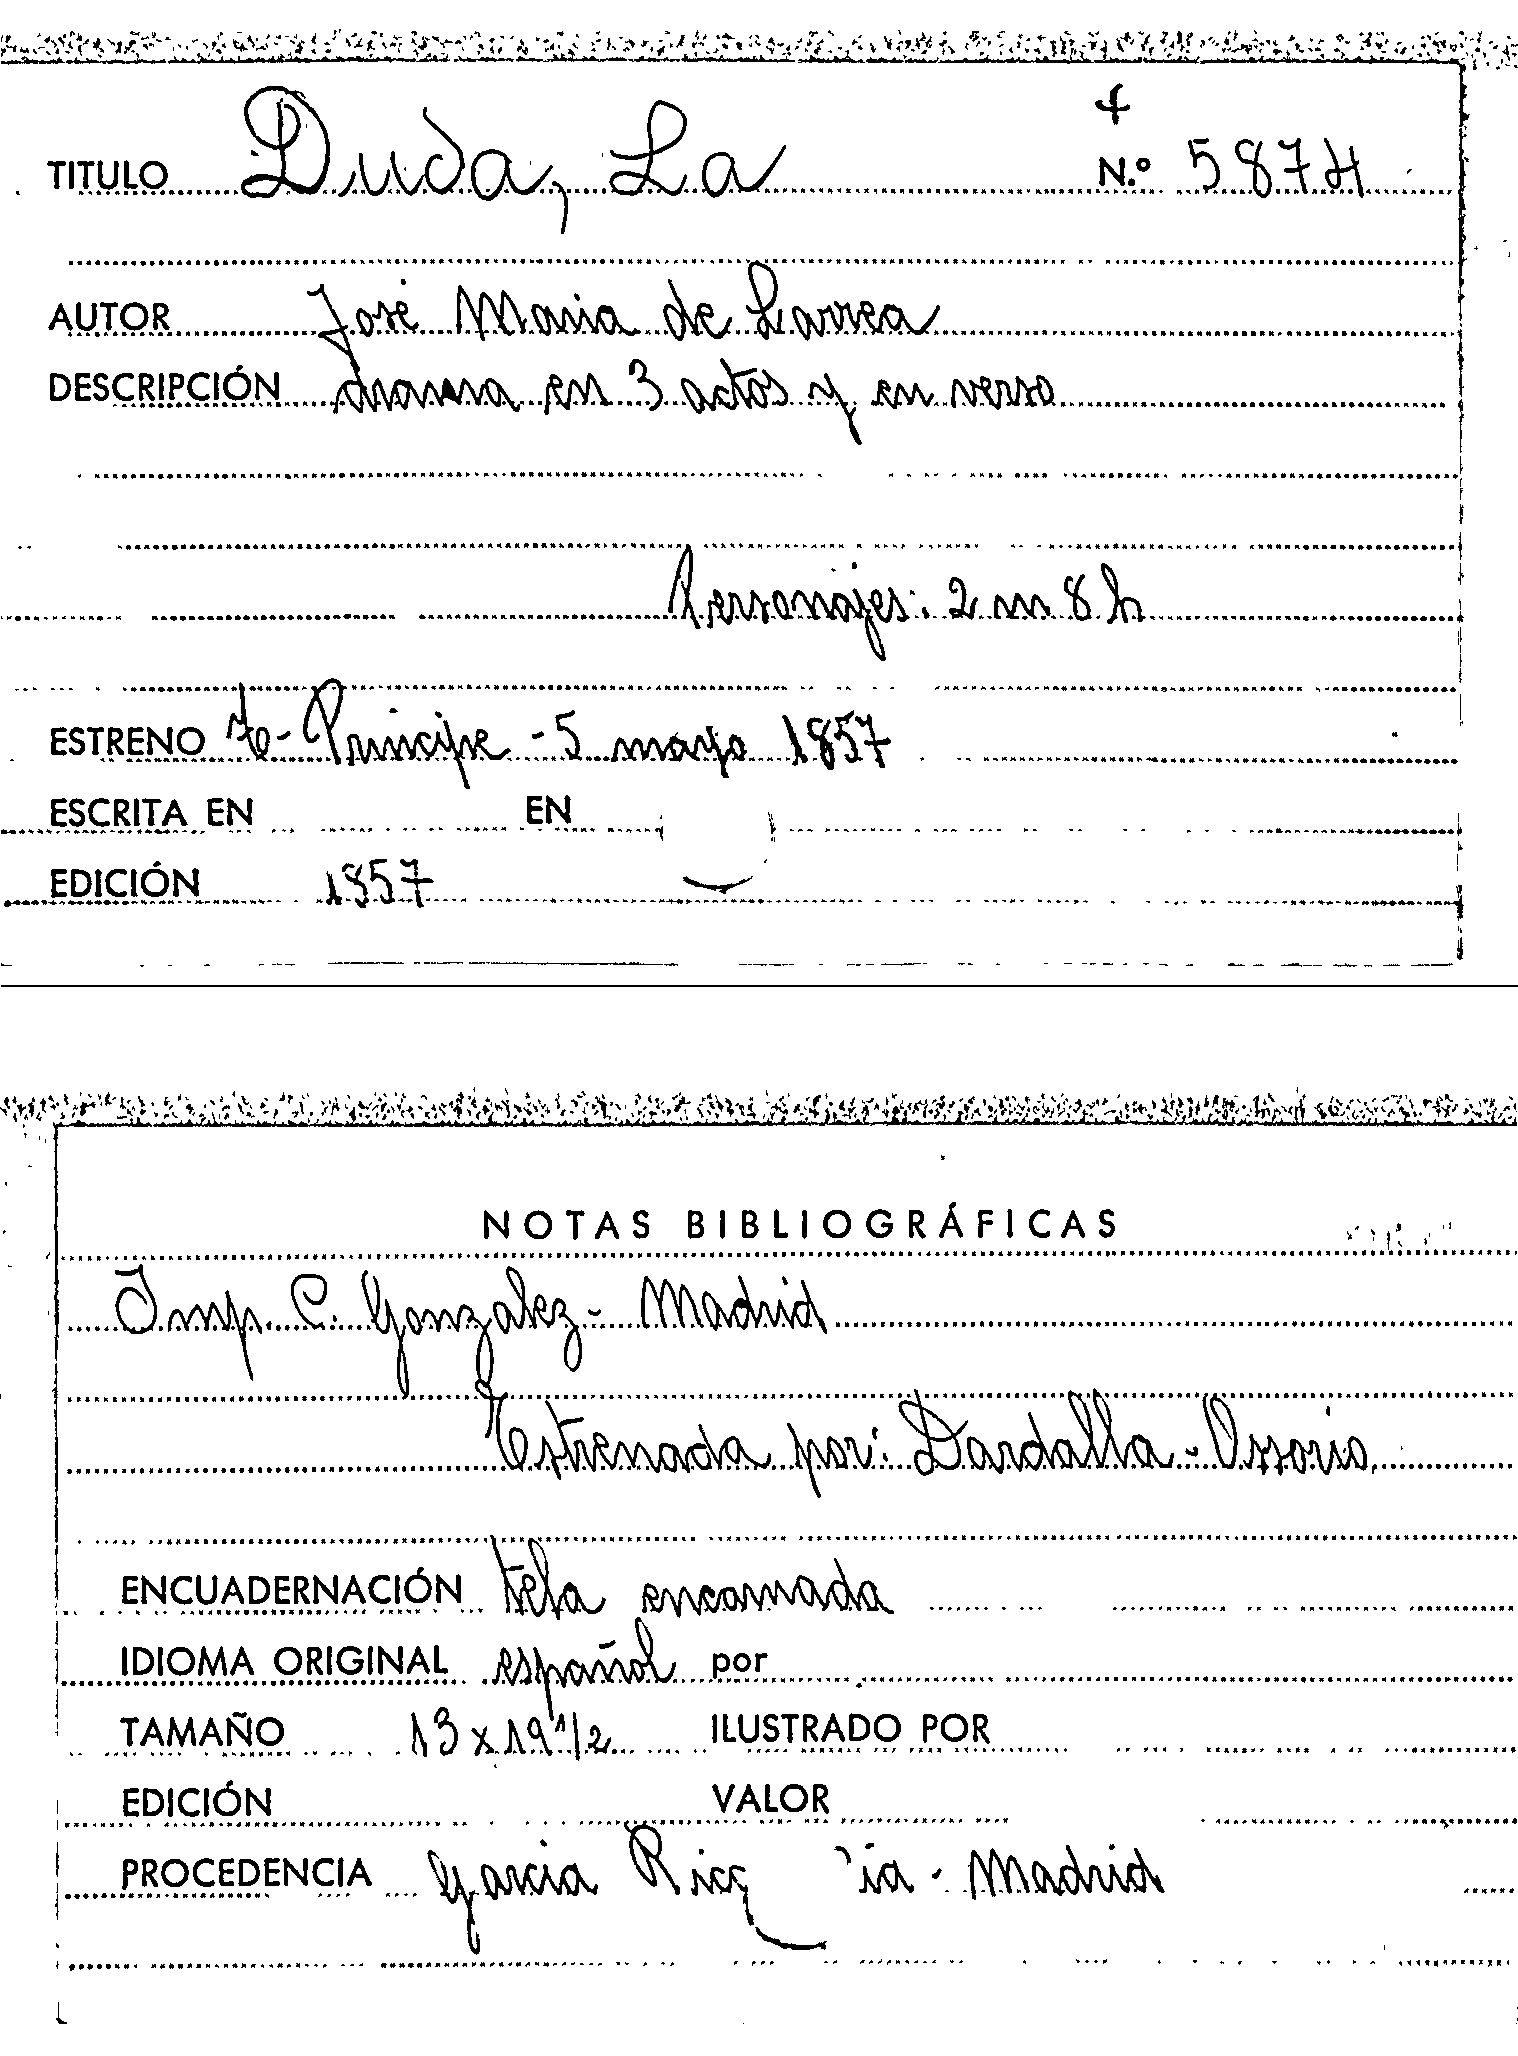 +
TITULO Duda, La N.º 5874
AUTOR José Maria de Larrea
DESCRIPCIÓN drama en 3 actos y en verso
Personajes: 2 m 8 h
ESTRENO Te- Principe - 5 mayo 1857
ESCRITA EN EN
EDICIÓN 1857
NOTAS BIBLIOGRÁFICAS
Imp. C. Gonzalez - Madrid
Estrenada por: Dardalla - Ossorio.
ENCUADERNACIÓN tela encarnada
IDIOMA ORIGINAL español por
TAMAÑO 13 x 19 1/2 ILUSTRADO POR
EDICIÓN VALOR
PROCEDENCIA Garcia - Madrid